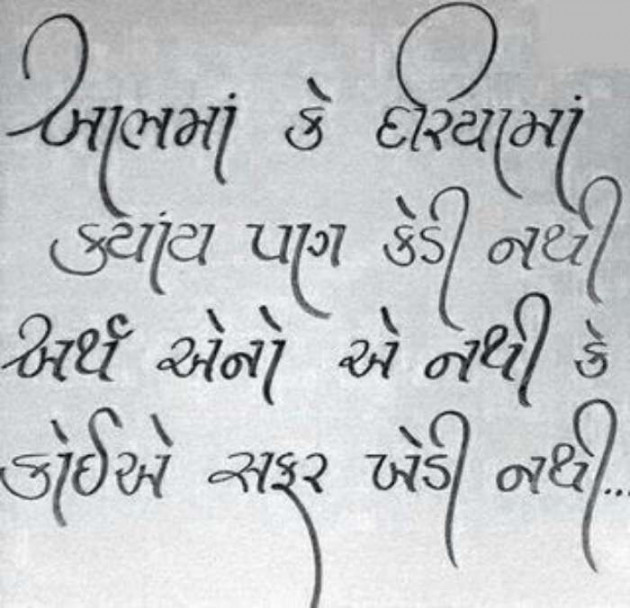 આભમાં કે દરિયામાં
ક્યાંય પણ કેડી નથી
અર્થ એનો એ નથી કે
કોઈએ સફર ખેડી નથી...